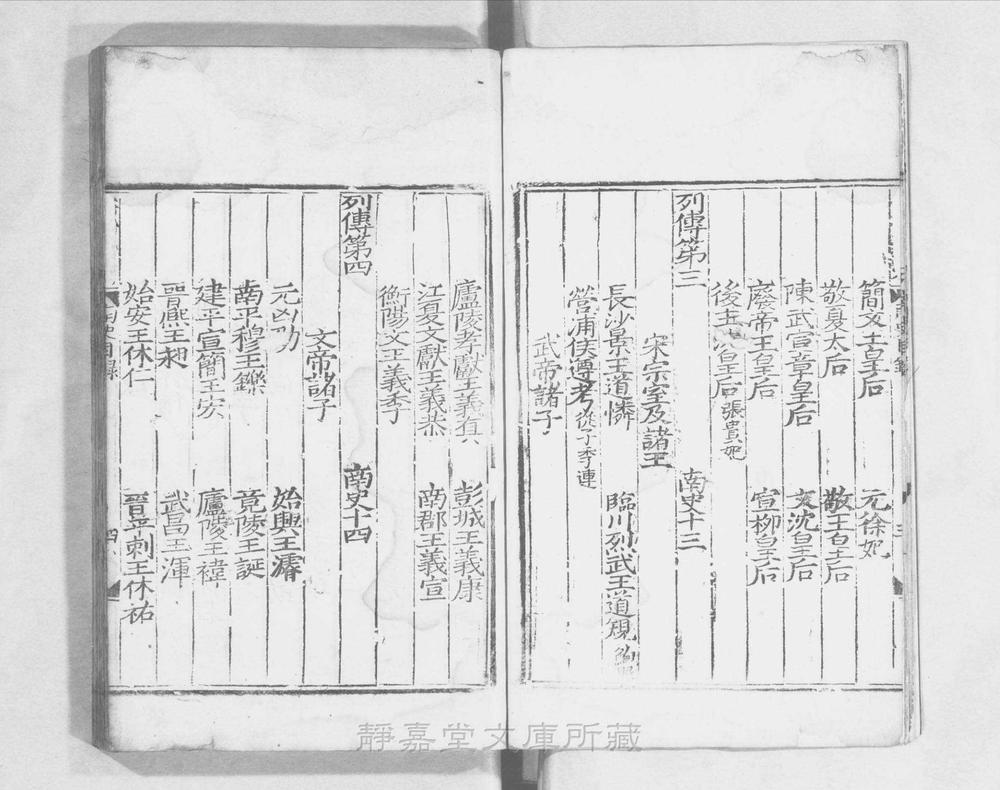 簡文王皇后 元徐妃
敬夏太后 敬王皇后
陳武宣章皇后 文沈皇后
廢帝王皇后 宣柳皇后
後主沈皇后 張貴妃
列傳第三 南史十三
宋宗室及諸王
長沙景王道憐 臨川烈武王道規
營浦侯遵考 從子季連
武帝諸子
廬陵孝獻王義真 彭城王義康
江夏文獻王義恭 南郡王義宣
衡陽文王義季
列傳第四 南史十四
文帝諸子
元凶劭 始興王濬
南平穆王鑠 竟陵王誕
建平宣簡王宏 廬陵王褘
晉熙王昶 武昌王渾
始安王休仁 晉平剌王休祐
南史目錄 四
靜嘉堂文庫所藏